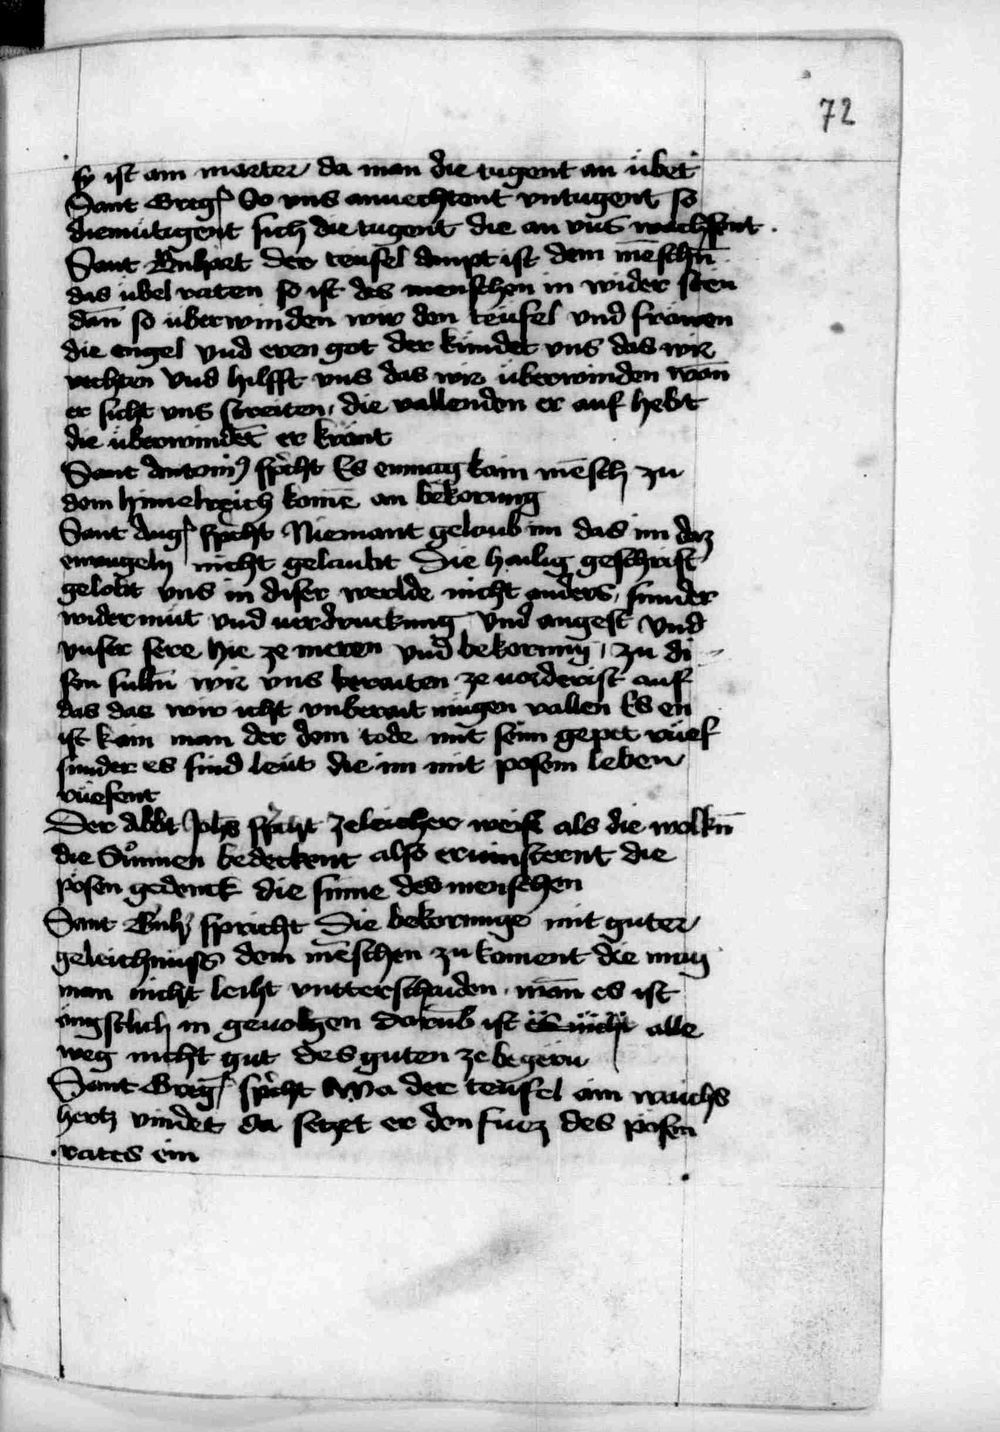 72
sy ist ain marter da man die tugent an übet
Sant Greg So vns anuechtent vntugent so
diemütigent sich die tugent die an vns wachsent .
Sant Bnhart der teufel ampt ist dem mēschn̄
das übel raten so ist des menschen in wider sten
dan̄ so überwinden wir den teüfel vnd fräwen
die engel vnd eren got der kündet vns das wir
vechten vnd hilfft vns das wir überwinden wan̄
er sicht vns streiten, die vallenden er auf hebt
die überwindēt er krönt
Sant Antoni9 sp̄cht Es enmag kain mēsch zu
dem himelreich komē an bekorung
Sant Aug sp̄cht Niemant gelaub im das im daz
ewangely nicht gelaubt Die hailig geschrift
gelobt vns in diser werlde nicht anders, sunder
widermüt vnd verdruckung vnd angest vnd
vnser sere hie ze meren vnd bekorung, zu di
sen sulln̄ wir vns beraiten ze vorderist auf
das das wir icht vnberait mügen vallen Es en
ist kain man der dem tode mit seim gepet rüef
sunder es sind leüt die im mit posem leben
rüefent
Der Abbt Johs̄ sp̄cht zeleicher weiss als die wolkn̄
die Sunnen bedeckent also ervinsternt die
pösen gedenck die sinne des menschen
Sant Bnh spricht Die bekorunge mit guter
geleichnuss dem mēschen zu koment die mag
man nicht leiht vntterschaiden, wan̄ es ist
ängstlich in geuolgen darub̄ ist es nicht alle
weg nicht gut des guten ze begern
Sant Greg sp̄cht Wa der teüfel ain waichs
hertz vindet da setzet er den fuez des pösen
rates ein